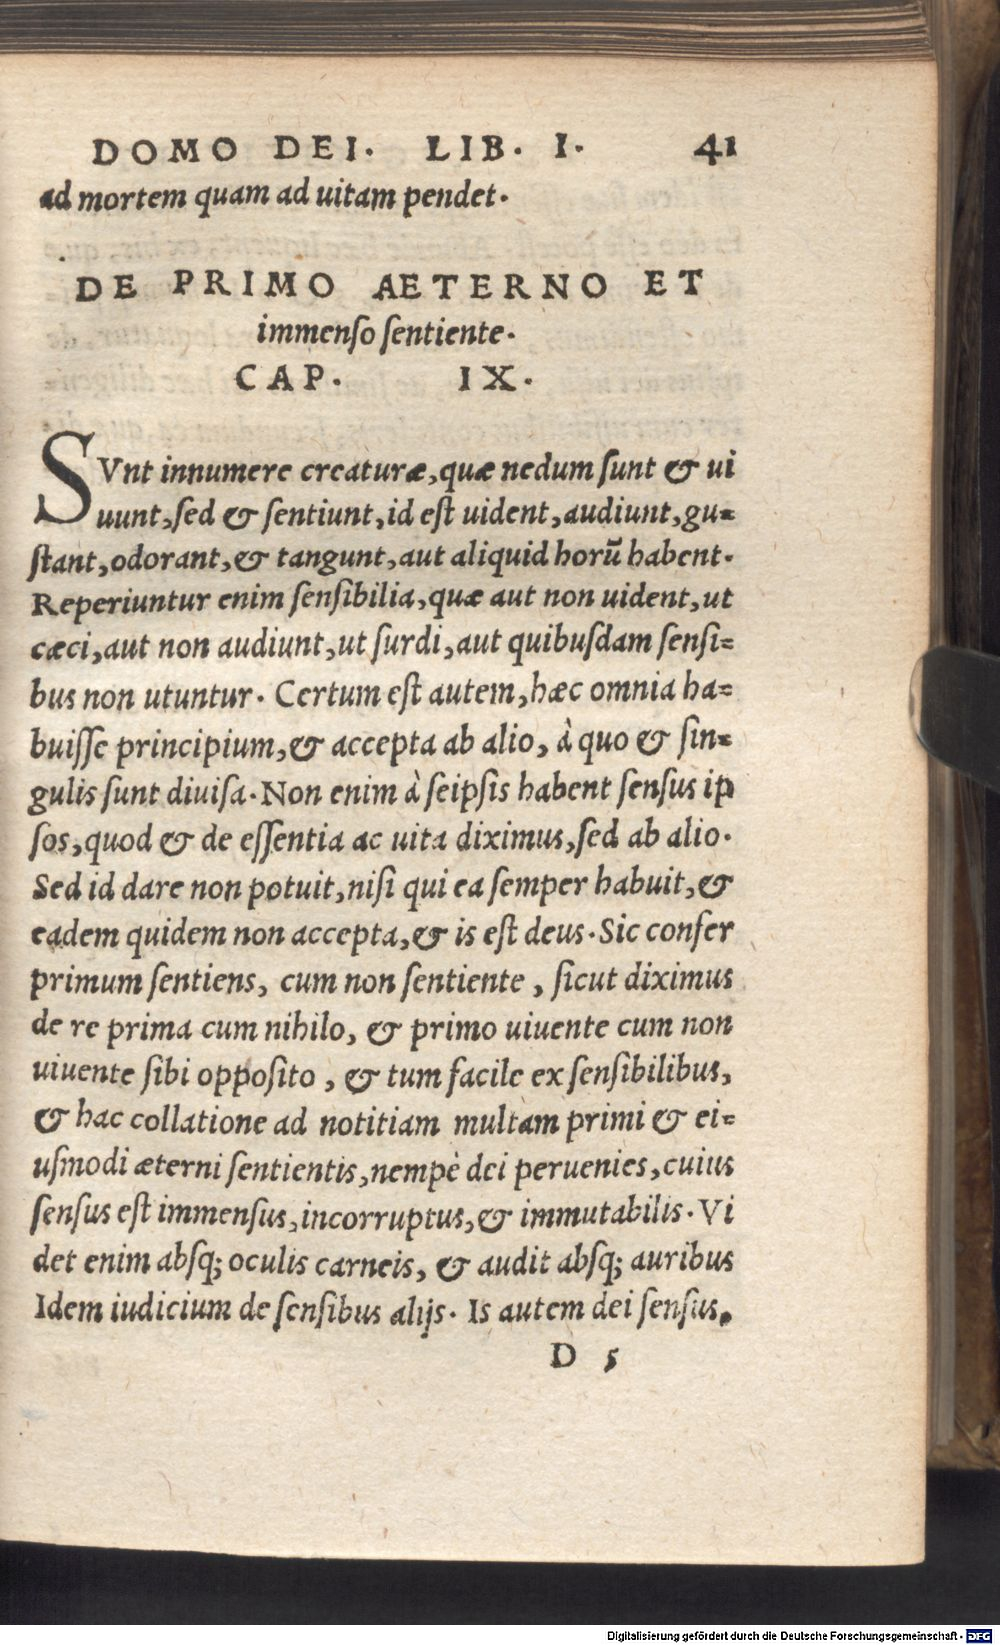 DOMO DEI. LIB. I. 41
ad mortem quam ad uitam pendet.
DE PRIMO AETERNO ET
immenso sentiente.
CAP. IX.
SVnt innumere creaturæ, quæ nedum sunt & ui
uunt, sed & sentiunt, id est uident, audiunt, gu=
stant, odorant, & tangunt, aut aliquid horũ habent.
Reperiuntur enim sensibilia, quæ aut non uident, ut
cæci, aut non audiunt, ut surdi, aut quibusdam sensi=
bus non utuntur. Certum est autem, hæc omnia ha=
buisse principium, & accepta ab alio, à quo & sin=
gulis sunt diuisa. Non enim à seipsis habent sensus ip
sos, quod & de essentia ac uita diximus, sed ab alio.
Sed id dare non potuit, nisi qui ea semper habuit, &
eadem quidem non accepta, & is est deus. Sic confer
primum sentiens, cum non sentiente, sicut diximus
de re prima cum nihilo, & primo uiuente cum non
uiuente sibi opposito, & tum facile ex sensibilibus,
& hac collatione ad notitiam multam primi & ei=
usmodi æterni sentientis, nempè dei peruenies, cuius
sensus est immensus, incorruptus, & immutabilis. Vi
det enim absq; oculis carneis, & audit absq; auribus
Idem iudicium de sensibus alijs. Is autem dei sensus,
D 5
Digitalisierung gefördert durch die Deutsche Forschungsgemeinschaft - DFG